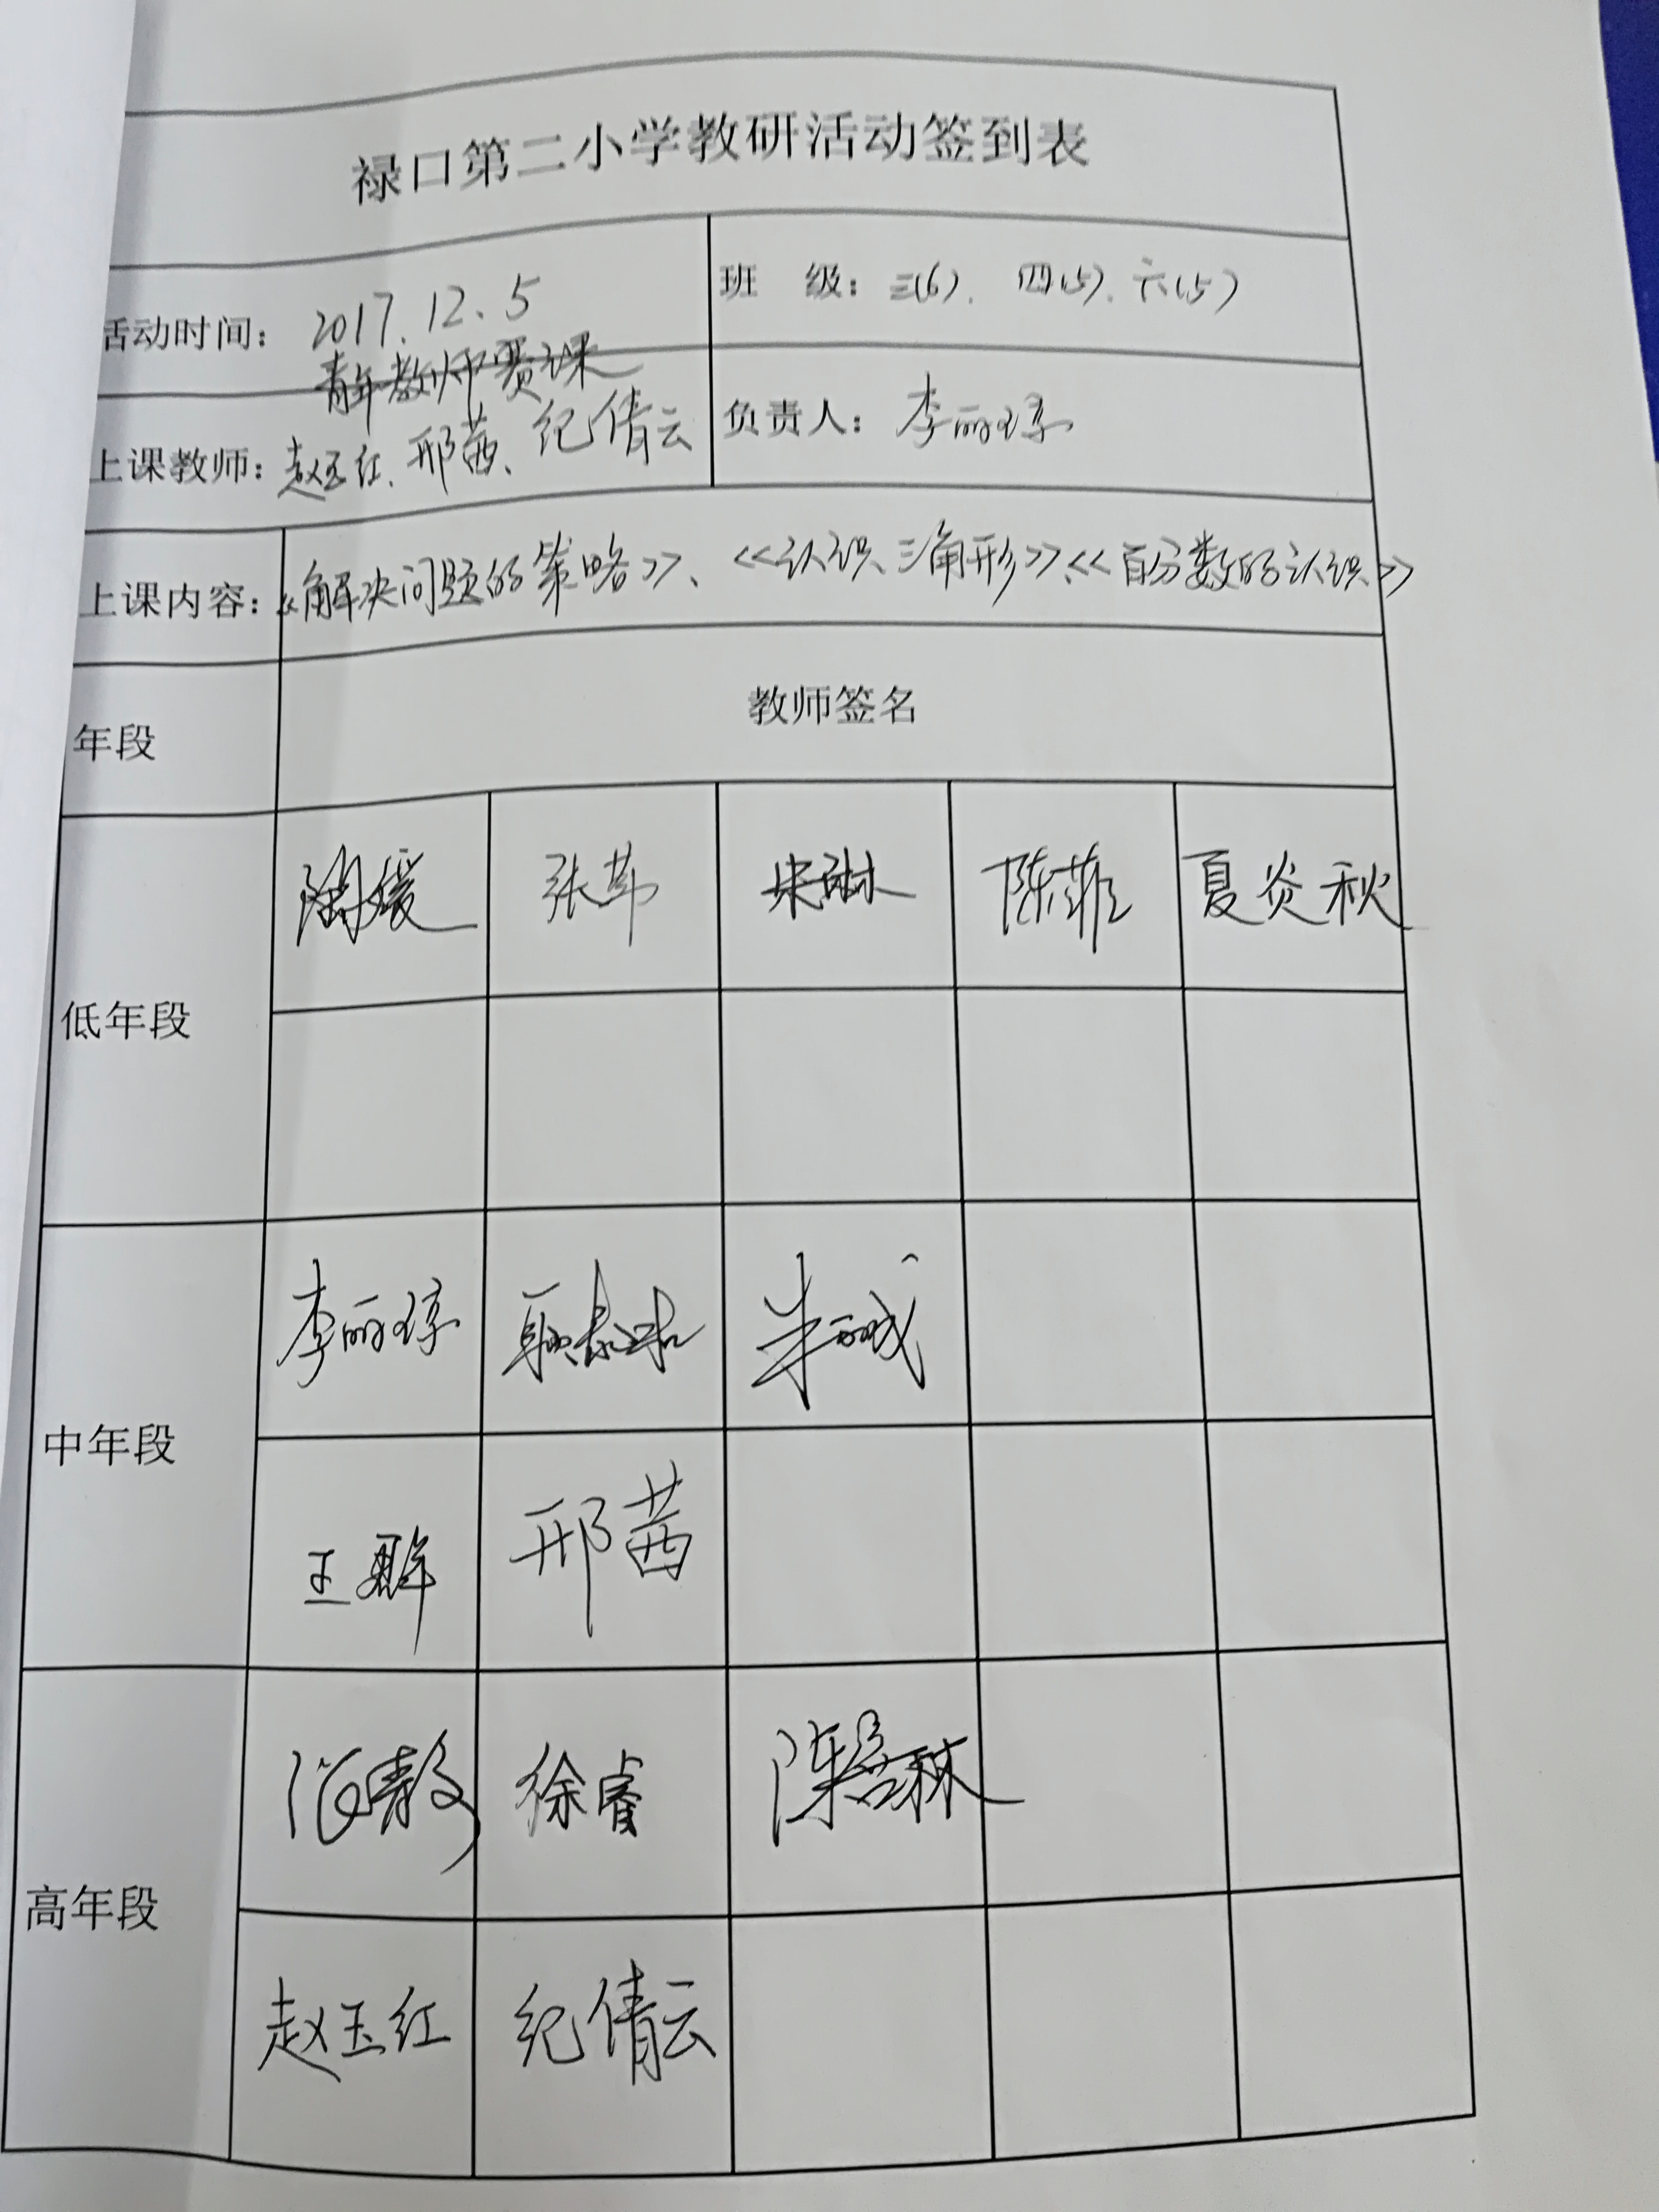 禄口第二小学教研活动签到表
活动时间：2017.12.5 班 级：三(6)、四(5)、六(5)
青年教师赛课
上课教师：赵玉红、邢茜、纪倩云 负责人：李丽琼
上课内容：《解决问题的策略》、《认识三角形》、《百分数的认识》
年段 教师签名
低年段
陶媛 张苇 朱琳 陈菲 夏炎秋
中年段
李丽琼
王群 邢茜
高年段
徐睿
赵玉红 纪倩云